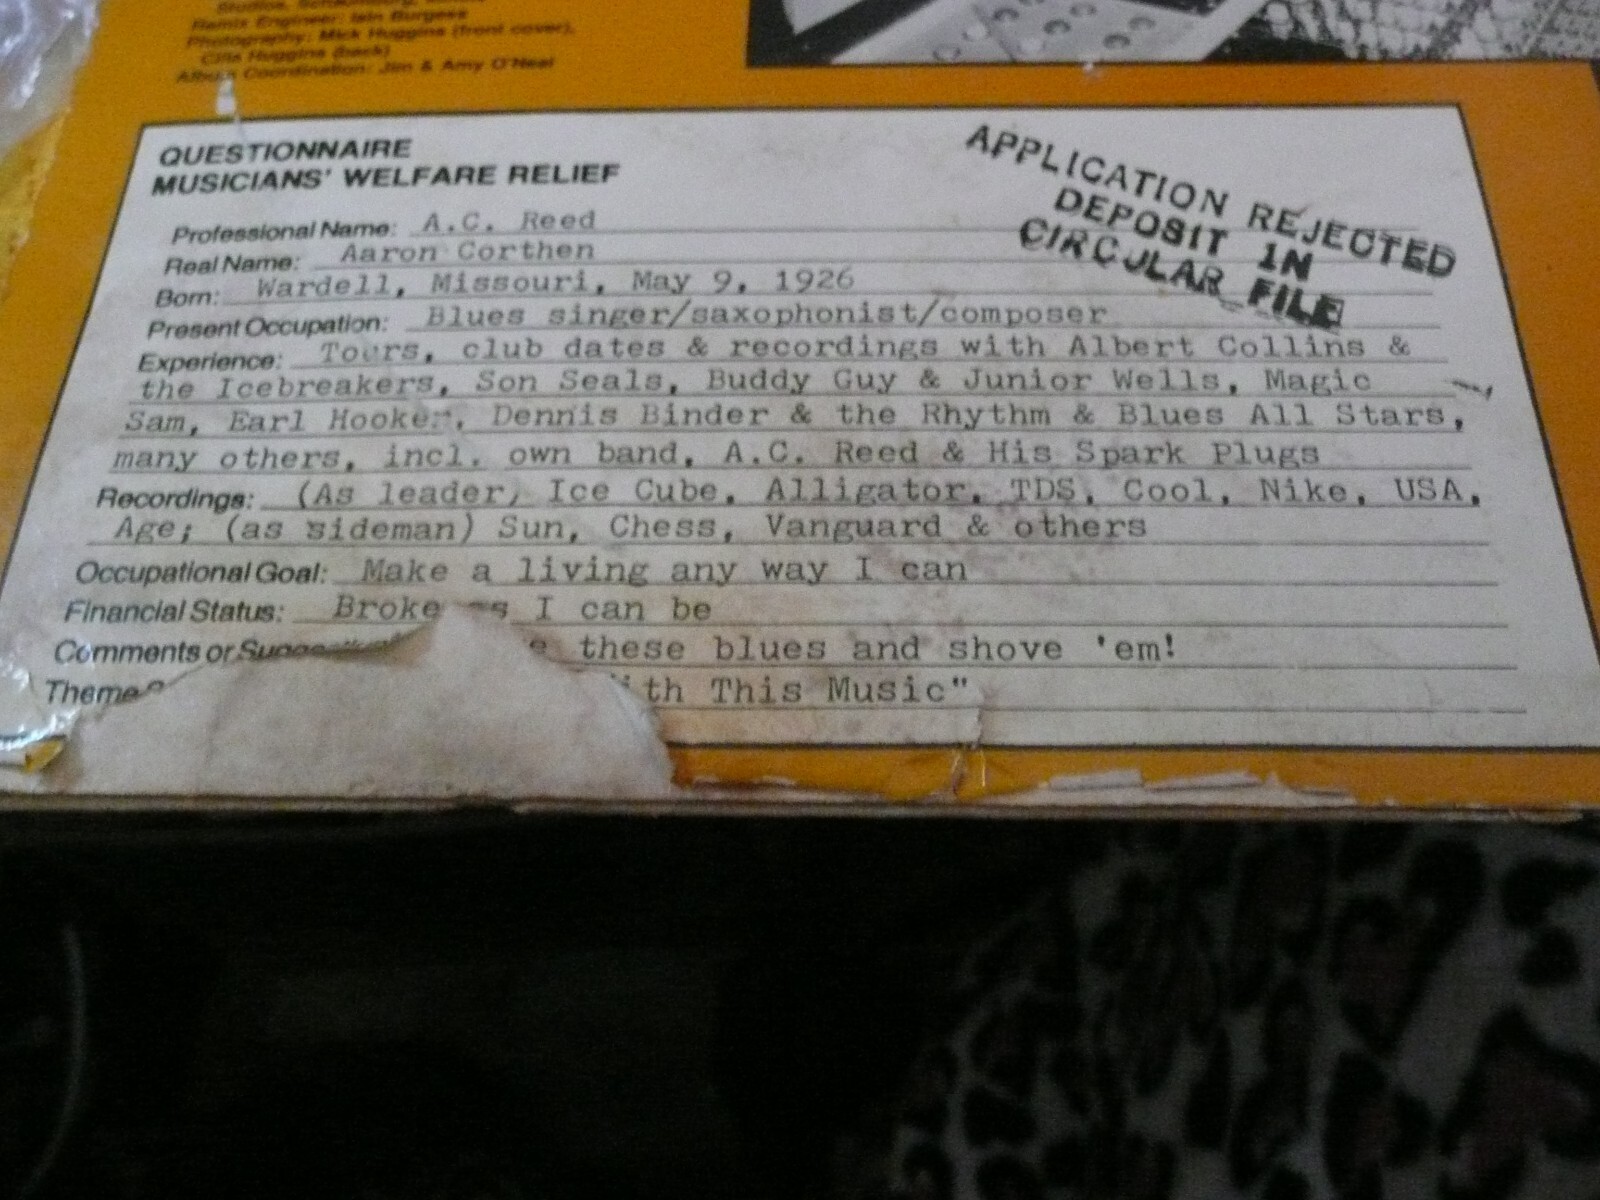 Studios, Schaumburg,
Remix Engineer: Iain Burgess
Photography: Mick Huggins (front cover),
Cilla Huggins (back)
Album Coordination: Jim & Amy O'Neal
QUESTIONNAIRE
MUSICIANS' WELFARE RELIEF
APPLICATION REJECTED
DEPOSIT IN
CIRCULAR FILE
Professional Name: A.C. Reed
Real Name: Aaron Corthen
Born: Wardell, Missouri, May 9, 1926
Present Occupation: Blues singer/saxophonist/composer
Experience: Tours, club dates & recordings with Albert Collins &
the Icebreakers, Son Seals, Buddy Guy & Junior Wells, Magic
Sam, Earl Hooker, Dennis Binder & the Rhythm & Blues All Stars,
many others, incl. own band, A.C. Reed & His Spark Plugs
Recordings: (As leader) Ice Cube, Alligator, TDS, Cool, Nike, USA,
Age; (as sideman) Sun, Chess, Vanguard & others
Occupational Goal: Make a living any way I can
Financial Status: Broke as I can be
Comments or these blues and shove 'em!
Theme With This Music"